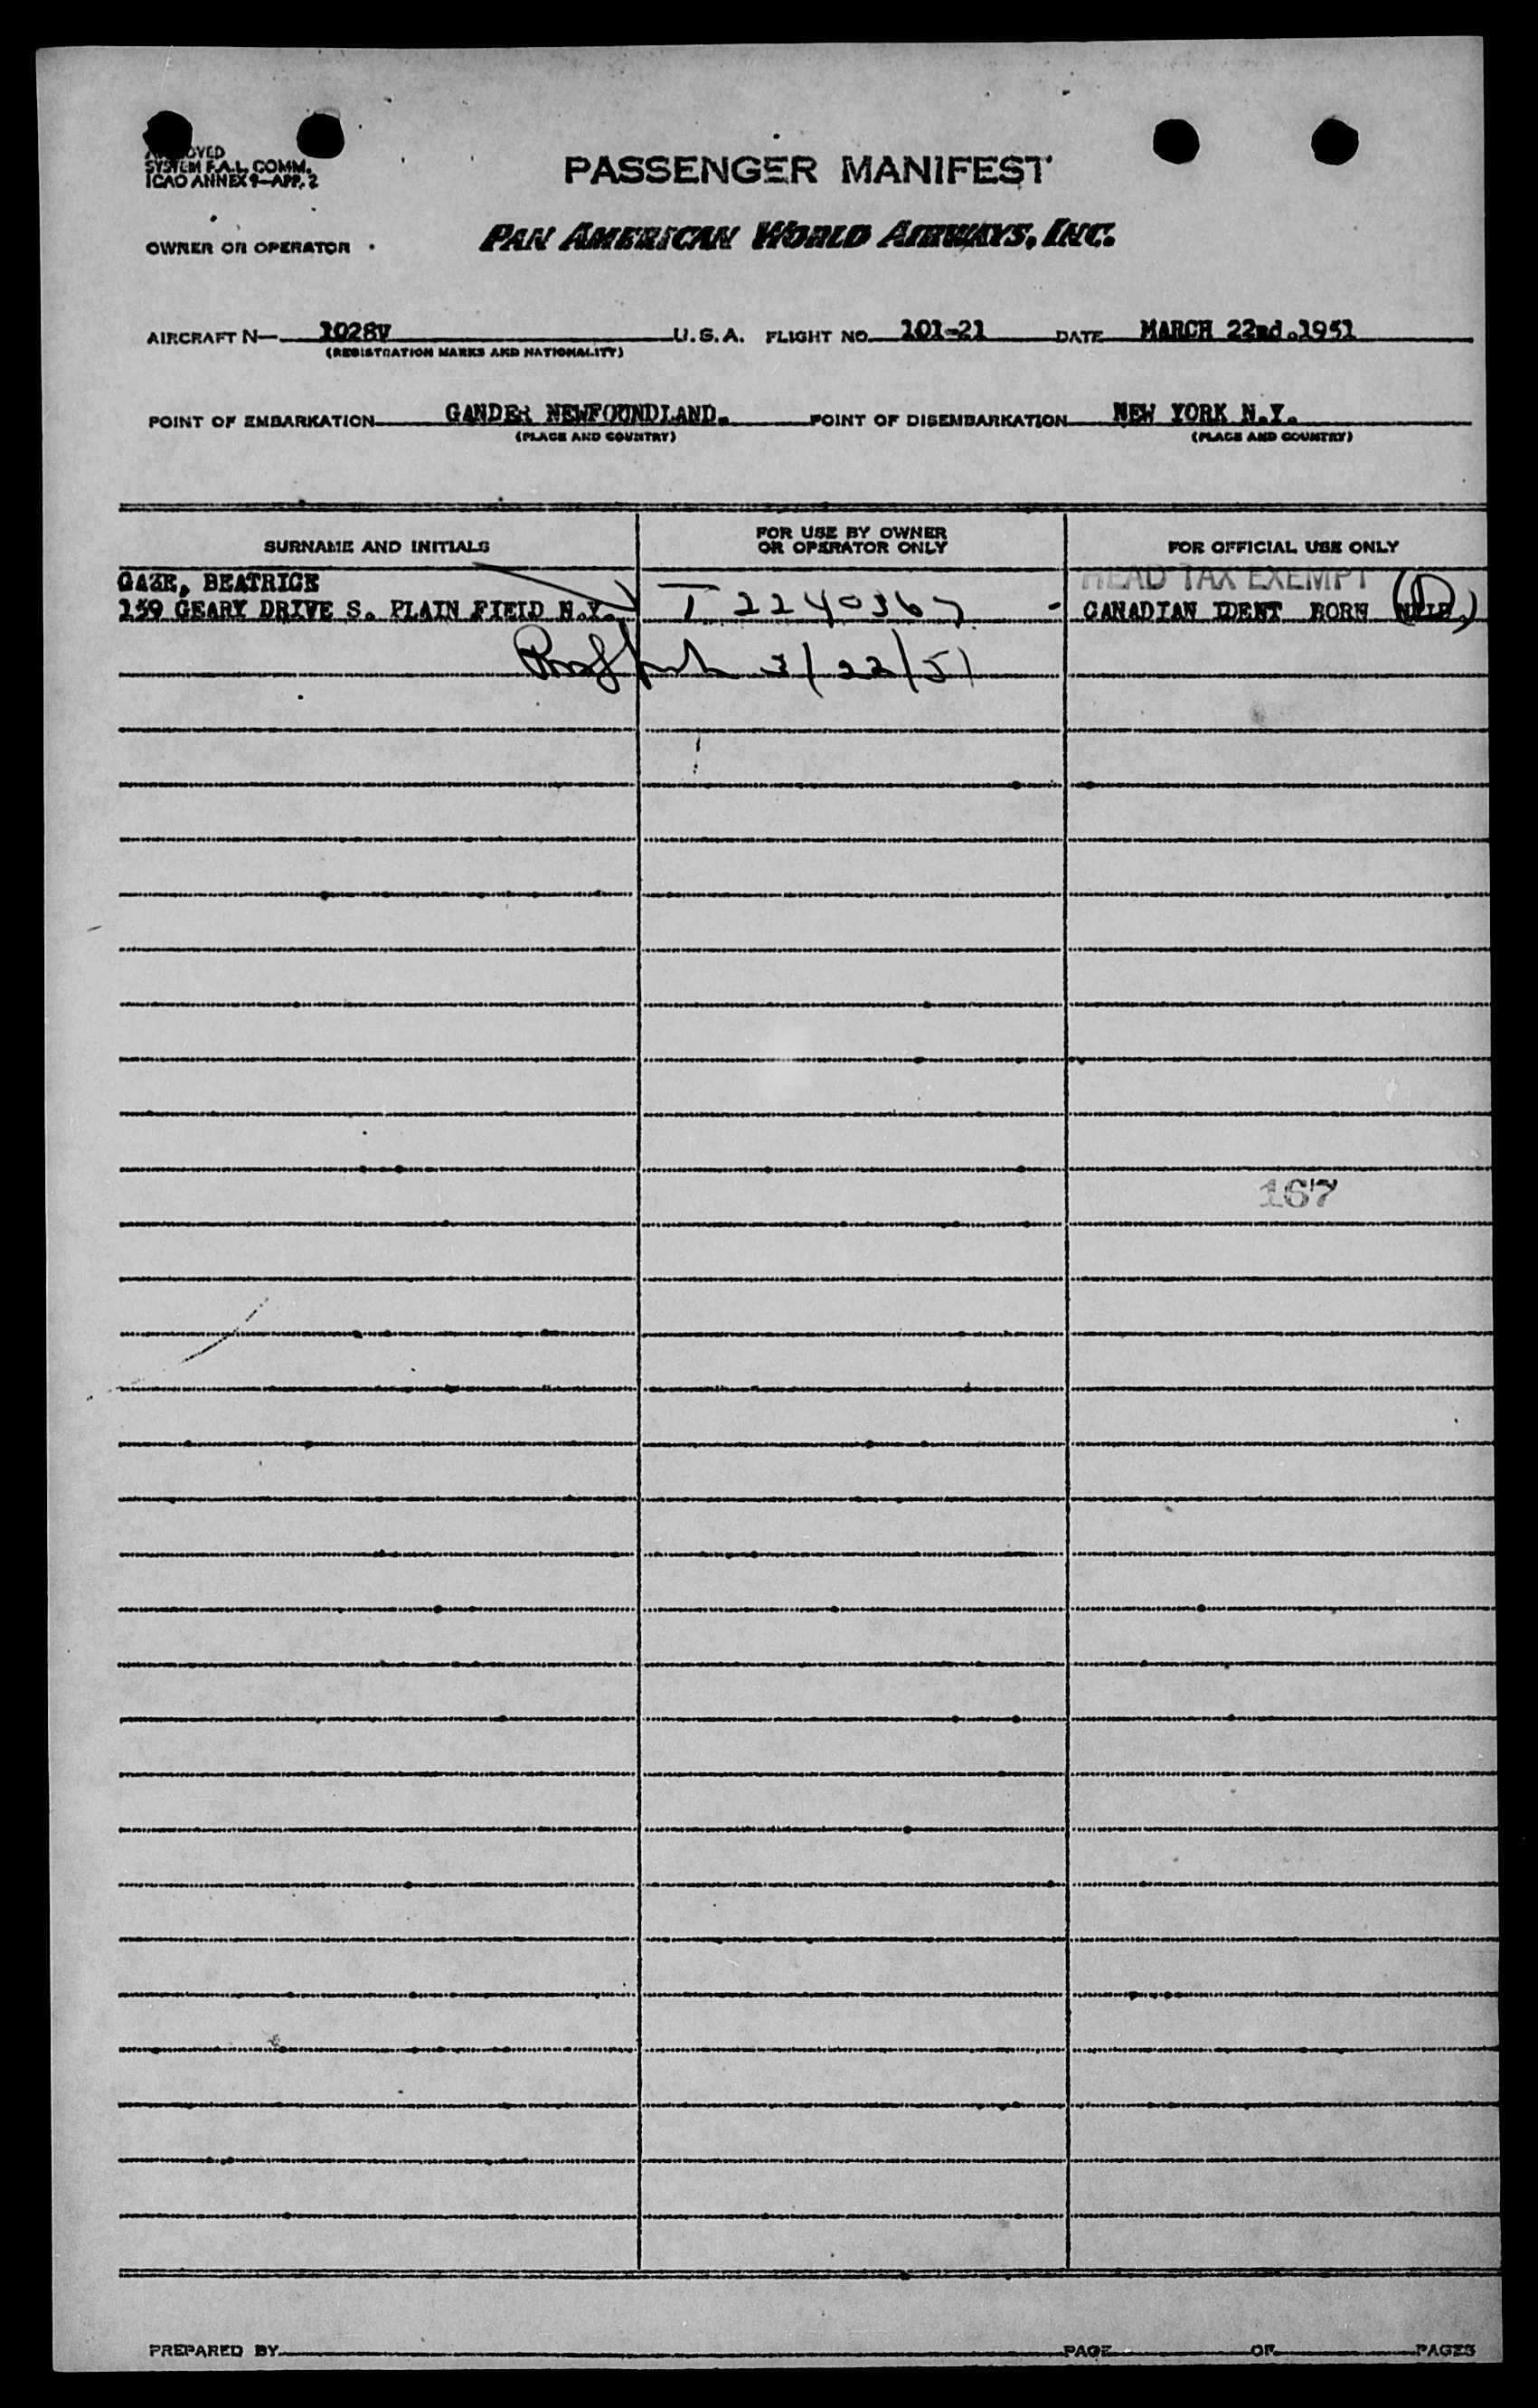 SYSTEM F.A.L. COMM.
ICAO ANNEX 9—APP. 2
PASSENGER MANIFEST
OWNER OR OPERATOR
PAN AMERICAN WORLD AIRWAYS, INC.
AIRCRAFT N— 1028V U.S.A. FLIGHT NO. 101-21 DATE MARCH 22nd.1951
(REGISTRATION MARKS AND NATIONALITY)
POINT OF EMBARKATION GANDER NEWFOUNDLAND. POINT OF DISEMBARKATION NEW YORK N.Y.
(PLACE AND COUNTRY) (PLACE AND COUNTRY)
SURNAME AND INITIALS FOR USE BY OWNER OR OPERATOR ONLY FOR OFFICIAL USE ONLY
GAZE, BEATRICE HEAD TAX EXEMPT
159 GEARY DRIVE S. PLAIN FIELD N.Y. T 2240367 - CANADIAN IDENT BORN
3/22/51
167
PREPARED BY PAGE OF PAGES